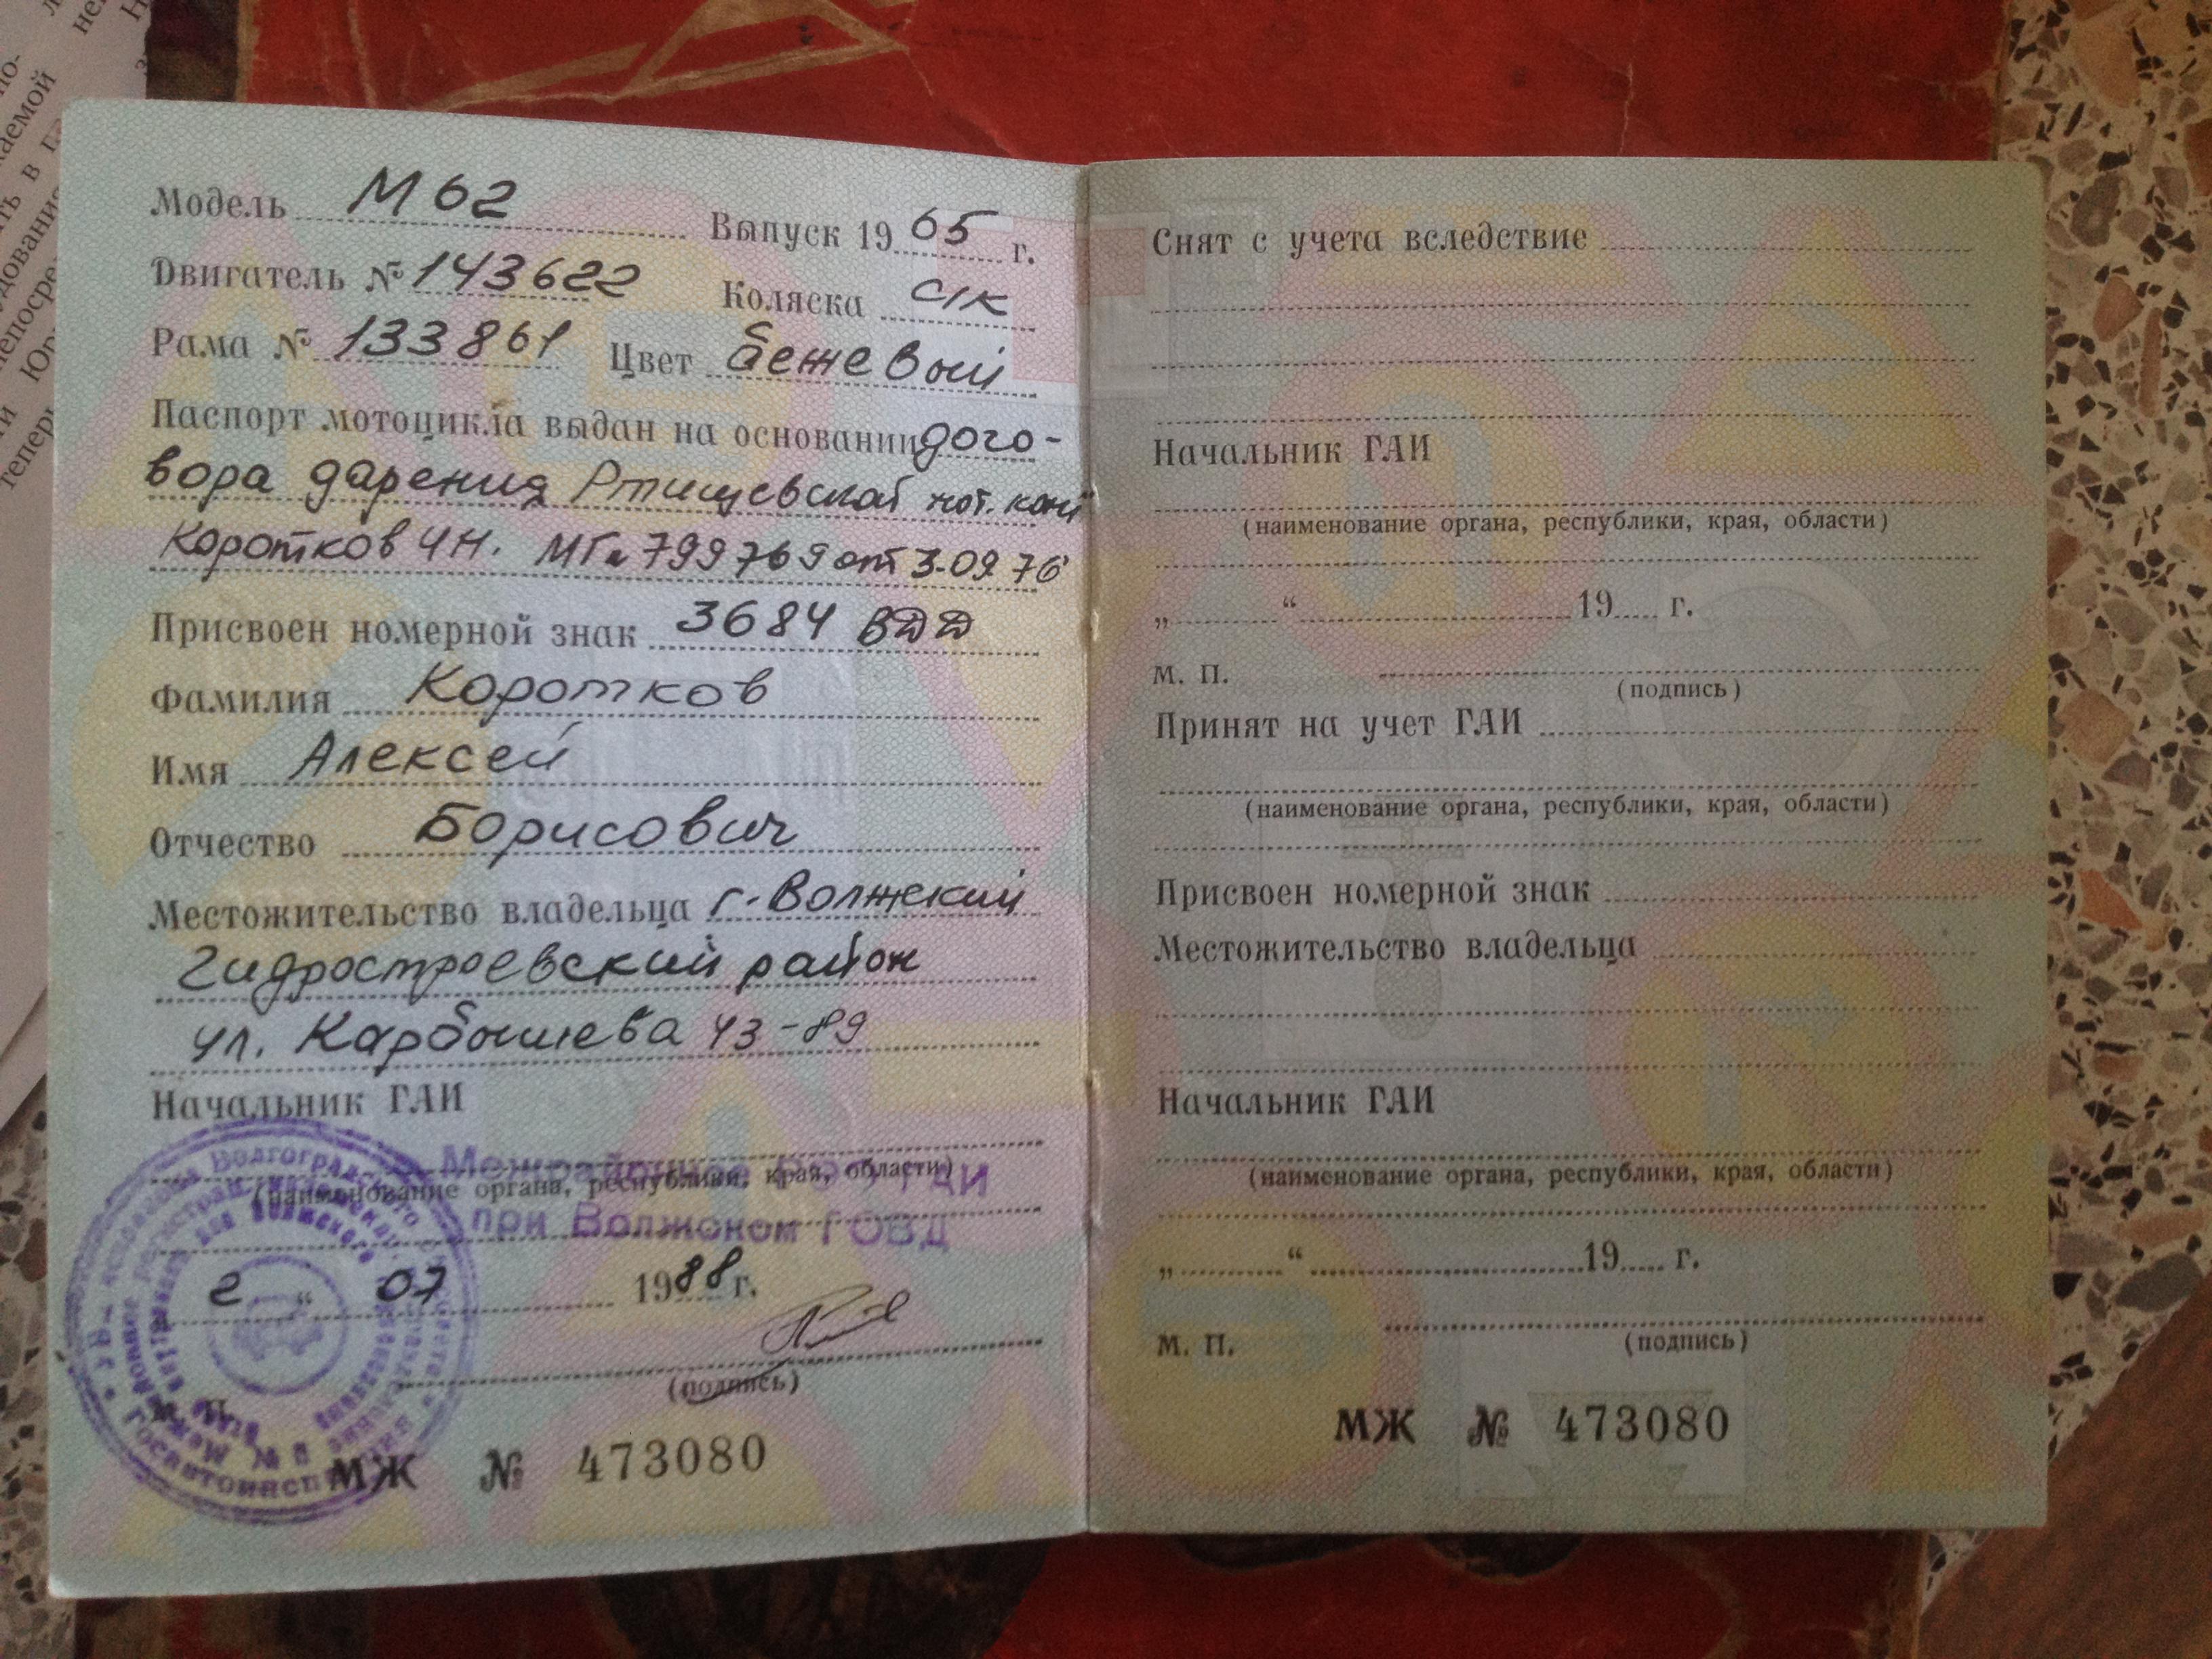 Модель М62 Выпуск 1965 г.
Двигатель № 143622 Коляска с/к
Рама № 133861 Цвет бежевый
Паспорт мотоцикла выдан на основании дого-
вора дарения Ртищевской нот. кон
Коротков МГ 799769 от 3.09.76
Присвоен номерной знак 3684 ВДД
Фамилия Коротков
Имя Алексей
Отчество Борисович
Местожительство владельца г. Волжский
Гидростроевский район
ул. Карбышева 43-89
Начальник ГАИ
Межрайонное РЭО ГАИ
(наименование органа, республики, края, области)
при Волжском ГОВД
2 “ 07 1988 г.
(подпись)
м. п.
МЖ № 473080
Снят с учета вследствие
Начальник ГАИ
(наименование органа, республики, края, области)
„ “ 19 г.
м. п.
(подпись)
Принят на учет ГАИ
(наименование органа, республики, края, области)
Присвоен номерной знак
Местожительство владельца
Начальник ГАИ
(наименование органа, республики, края, области)
„ “ 19 г.
м. п.
(подпись)
МЖ № 473080